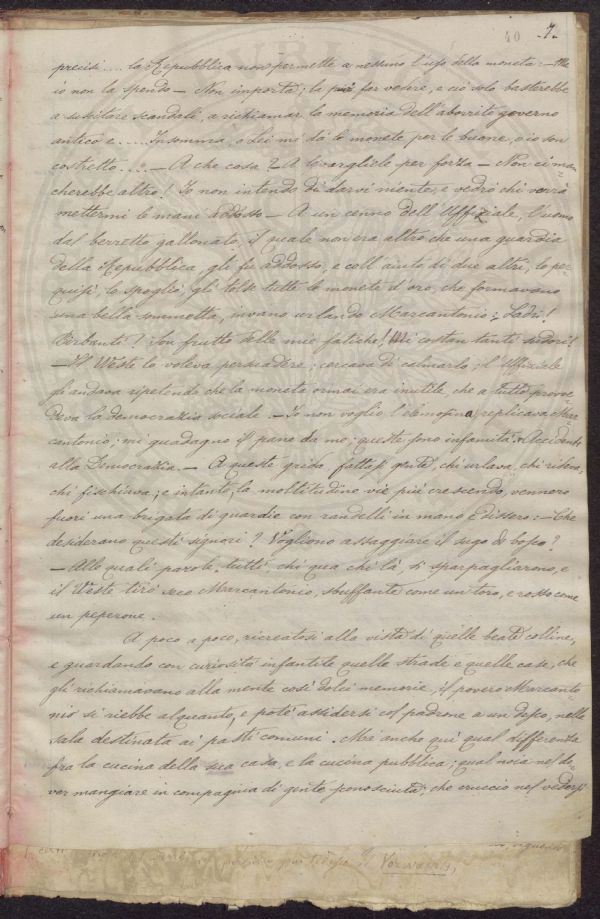 40 .7.
precisi.... la Repubblica non permette a nessuno l'uso della moneta: — Ma
io non la spendo — Non importa; la può far vedere, e ciò solo basterebbe
a suscitare scandali, a richiamar la memoria dell'aborrito governo
antico e..... Insomma, o Lei mi dà le monete per le buone, o io son
costretto..... — A che cosa? — A levargliele per forza — Non ci man-
cherebbe altro! Io non intendo di darvi niente, e vedrò chi verrà
mettermi le mani addosso — A un cenno dell'Uffiziale, l'uomo
dal berretto gallonato, il quale non era altro che una guardia
della Repubblica, gli fu addosso, e coll'aiuto di due altri, lo per-
quisì, lo spogliò, gli tolse tutte le monete d'oro, che formavano
una bella sommetta, invano urlando Marcantonio: Ladri!
Birbanti! Son frutto delle mie fatiche! Mi costan tanti sudori!
— Il Weste lo voleva persuadere; cercava di calmarlo; l'Uffiziale
andava ripetendo che la moneta ormai era inutile, che a tutto provve-
deva la democrazia sociale. — Io non voglio l'elemosina, replicava Mar-
cantonio; mi guadagno il pane da me; queste sono infamità. Accidenti
alla Democrazia. — A queste grida fattasi gente, chi urlava, chi rideva,
chi fischiava; e intanto, la moltitudine vie più crescendo, vennero
fuori una brigata di guardie con randelli in mano e dissero: — Che
desiderano questi signori? Vogliono assaggiare il sugo di bosco?
— Alle quali parole, tutti, chi qua chi là si sparpagliarono, e
il Weste tirò seco Marcantonio, sbuffante come un toro, e rosso come
un peperone.
A poco a poco, ricreatosi alla vista di quelle beate colline,
e guardando con curiosità infantile quelle strade e quelle case, che
gli richiamavano alla mente così dolci memorie, il povero Marcanto-
nio si riebbe alquanto, e potè assidersi col padrone a un desco, nella
sala destinata ai pasti comuni. Ma anche qui qual differenza
fra la cucina della sua casa, e la cucina pubblica; qual noia nel do-
ver mangiare in compagnia di gente sconosciuta; che cruccio nel vedersi
Il Vorwärts,